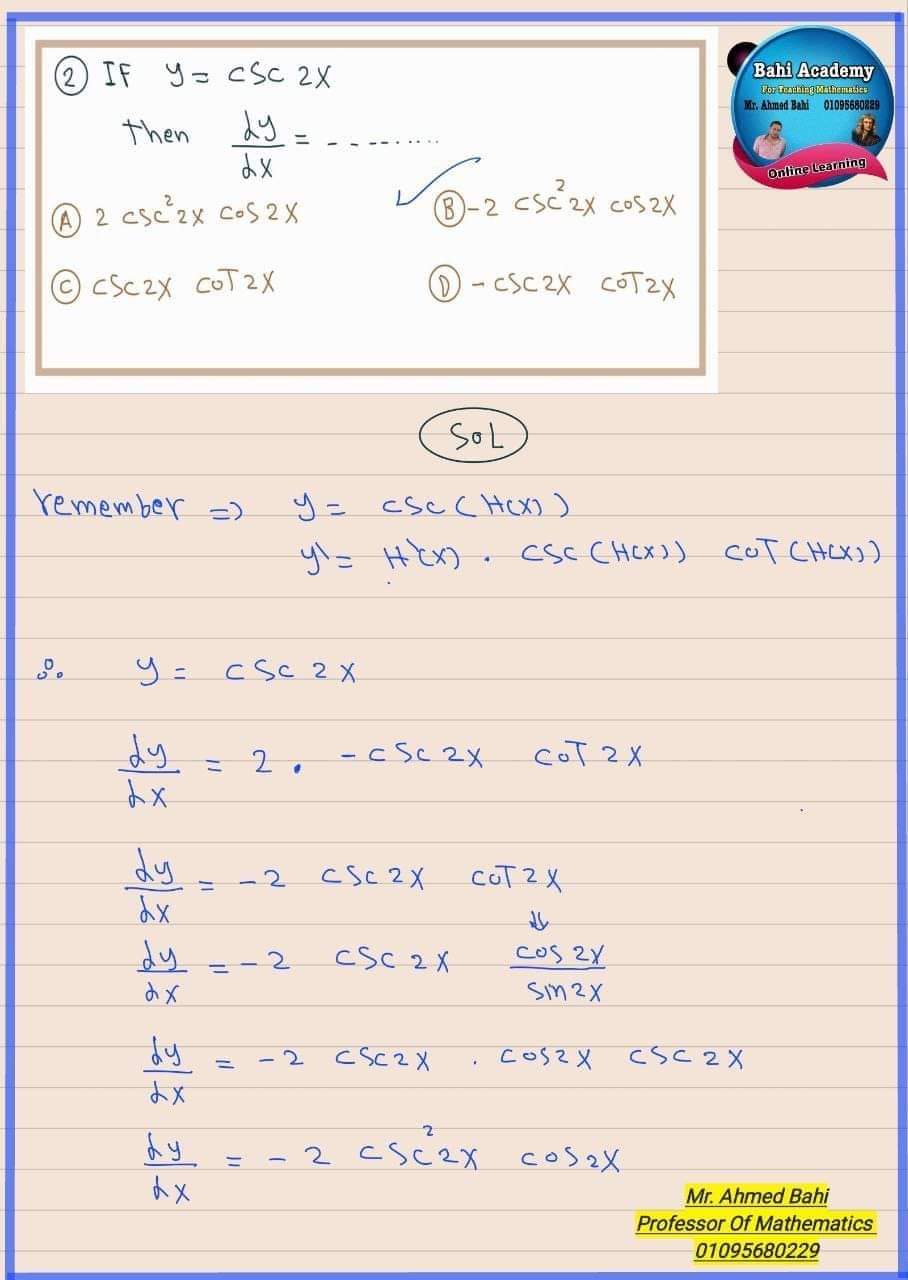 ② IF y = csc 2x
Bahi Academy
For Teaching Mathematics
Mr. Ahmed Bahi 01095680229
Online Learning
Then dy/dx = ..........
Ⓐ 2 csc² 2x cos 2x
Ⓑ -2 csc² 2x cos 2x
Ⓒ csc 2x coT 2x
Ⓓ - csc 2x coT 2x
SoL
remember => y = csc (H(x))
y' = H'(x) . csc (H(x)) coT (H(x))
∴ y = csc 2x
dy/dx = 2 . - csc 2x coT 2x
dy/dx = -2 csc 2x coT 2x
⇓
dy/dx = -2 csc 2x cos 2x/sin 2x
dy/dx = -2 csc 2x . cos 2x csc 2x
dy/dx = -2 csc² 2x cos 2x
Mr. Ahmed Bahi
Professor Of Mathematics
01095680229